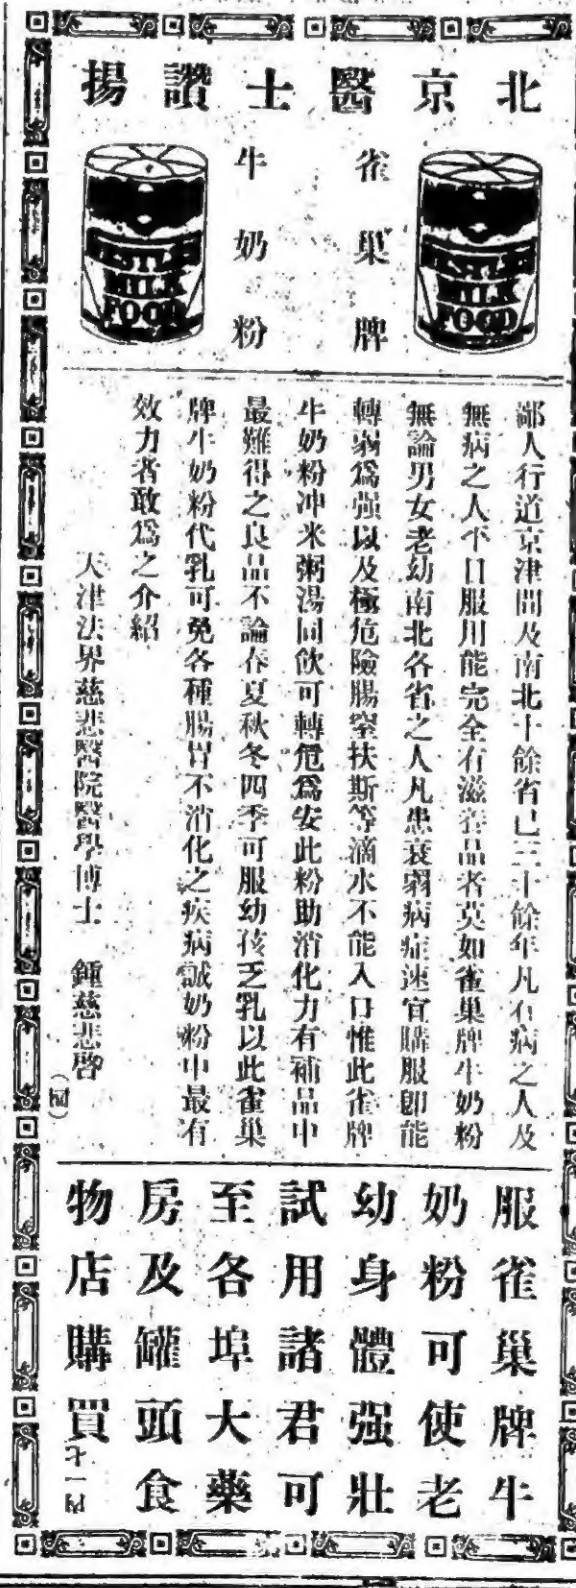 北京醫士讚揚
雀巢牌
牛奶粉
NESTLE'S
MILK
FOOD
NESTLE'S
MILK
FOOD
鄙人行道京津間及南北十餘省已三十餘年凡有病之人及
無病之人平日服用能完全有滋養品者莫如雀巢牌牛奶粉
無論男女老幼南北各省之人凡患衰弱病症速宜購服卽能
轉弱爲强以及極危險腸窒扶斯等滴水不能入口惟此雀牌
牛奶粉冲米粥湯同飲可轉危爲安此粉助消化力有補品中
最難得之良品不論春夏秋冬四季可服幼孩乏乳以此雀巢
牌牛奶粉代乳可免各種腸胃不消化之疾病誠奶粉中最有
效力者敢爲之介紹
天津法界慈悲醫院醫學博士 鍾慈悲啓
服雀巢牌牛
奶粉可使老
幼身體强壯
試用諸君可
至各埠大藥
房及罐頭食
物店購買